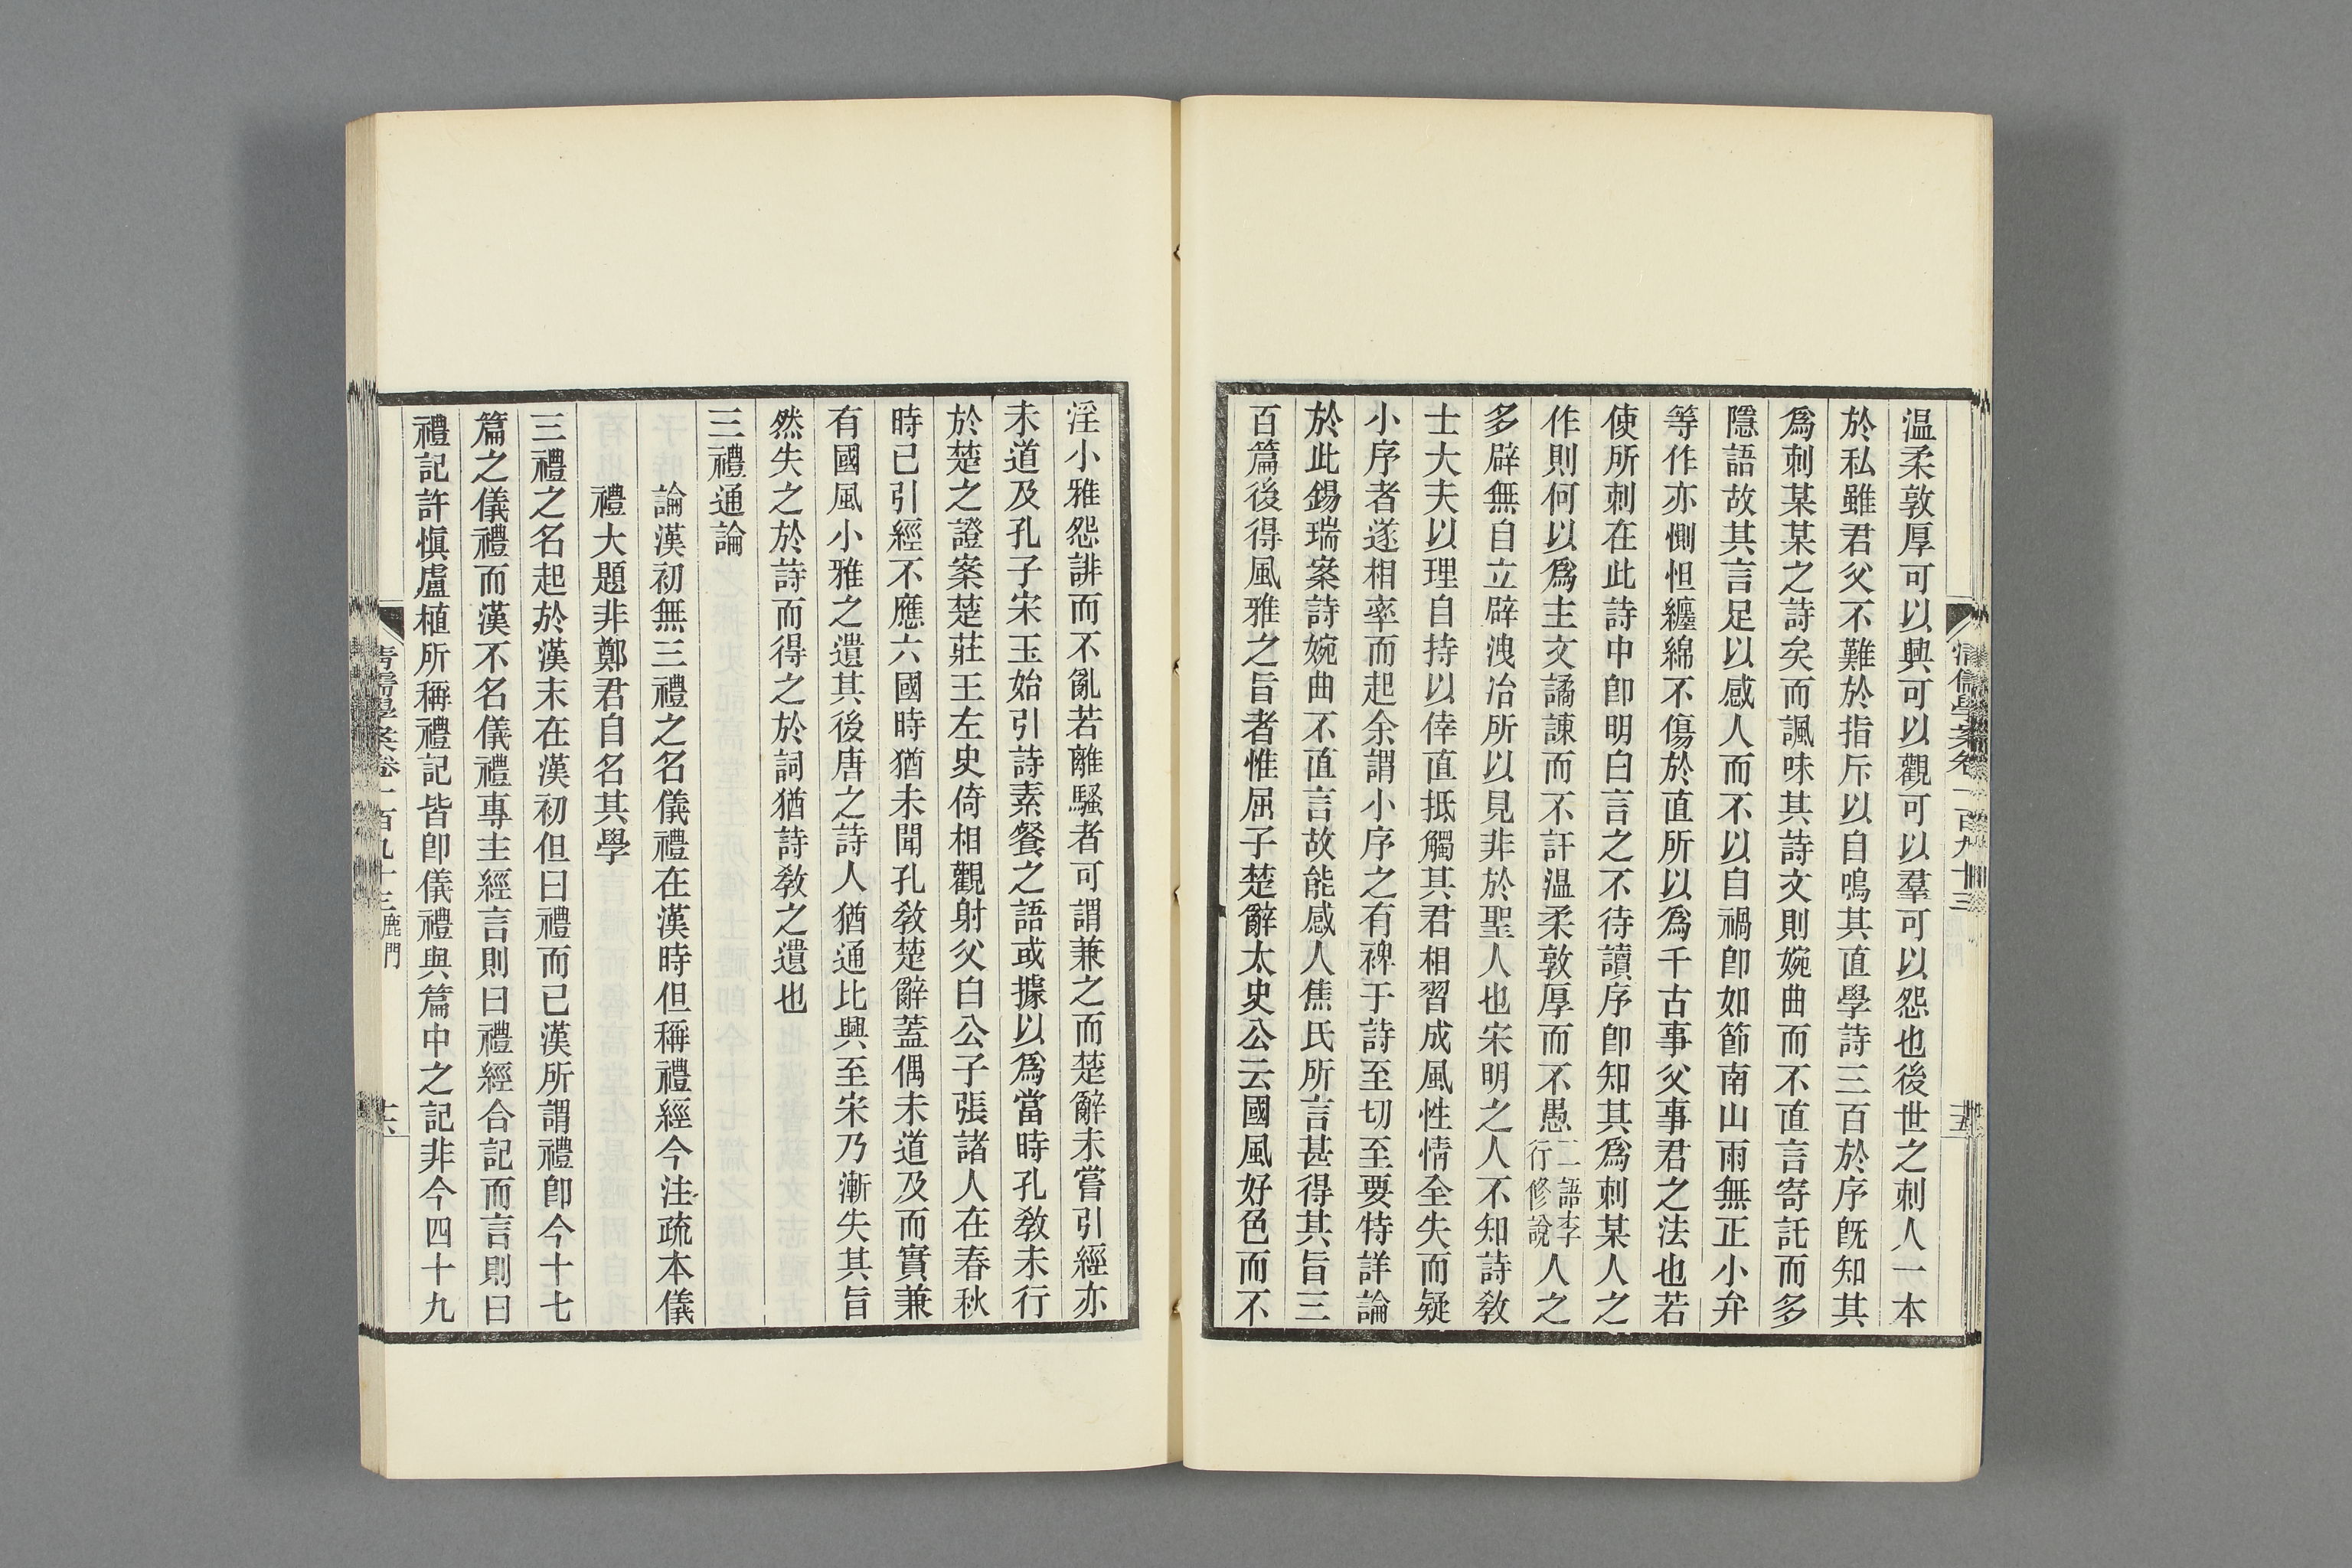 温柔敦厚可以興可以觀可以羣可以怨也後世之刺人一本
於私雖君父不難於指斥以自鳴其直學詩三百於序旣知其
爲刺某某之詩矣而諷味其詩文則婉曲而不直言寄託而多
隱語故其言足以感人而不以自禍卽如節南山雨無正小弁
等作亦惻怛纏綿不傷於直所以爲千古事父事君之法也若
使所刺在此詩中卽明白言之不待讀序卽知其爲刺某人之
作則何以爲主文譎諫而不訐温柔敦厚而不愚二語李行修說人之
多辟無自立辟洩冶所以見非於聖人也宋明之人不知詩敎
士大夫以理自持以倖直抵觸其君相習成風性情全失而疑
小序者遂相率而起余謂小序之有裨于詩至切至要特詳論
於此錫瑞案詩婉曲不直言故能感人焦氏所言甚得其旨三
百篇後得風雅之旨者惟屈子楚辭太史公云國風好色而不
清儒學案卷一百九十三
十五
淫小雅怨誹而不亂若離騷者可謂兼之而楚辭未嘗引經亦
未道及孔子宋玉始引詩素餐之語或據以爲當時孔敎未行
於楚之證案楚莊王左史倚相觀射父白公子張諸人在春秋
時已引經不應六國時猶未聞孔敎楚辭蓋偶未道及而實兼
有國風小雅之遺其後唐之詩人猶通比興至宋乃漸失其旨
然失之於詩而得之於詞猶詩敎之遺也
三禮通論
論漢初無三禮之名儀禮在漢時但稱禮經今注疏本儀
禮大題非鄭君自名其學
三禮之名起於漢末在漢初但曰禮而已漢所謂禮卽今十七
篇之儀禮而漢不名儀禮專主經言則曰禮經合記而言則曰
禮記許愼盧植所稱禮記皆卽儀禮與篇中之記非今四十九
清儒學案卷一百九十三 鹿門
十六